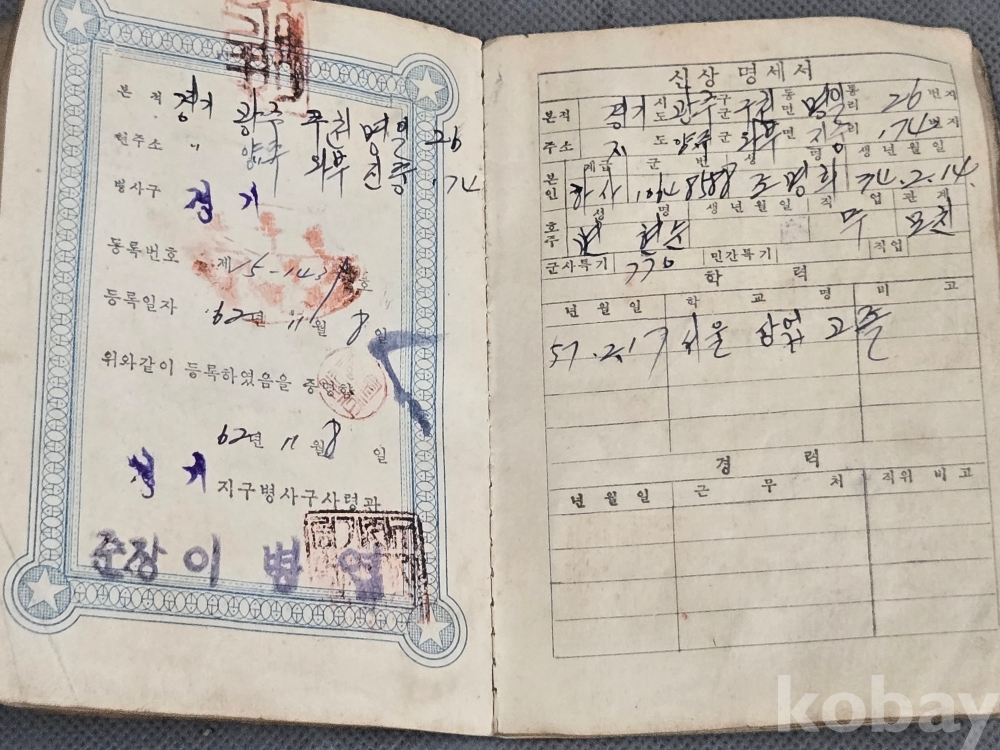 본적 경기 광주 구천 명일 26
현주소 〃 양주 와부 진중 174
병사구 경기
등록번호 제15-143 호
등록일자 62년 11월 8일
위와같이 등록하였음을 증명함
62년 11월 8일
경기 지구병사구사령관
준장 이 병 엽
신상명세서
본적 경기 시도 광주 구군 구천 동면 명일 통리 26 번지
주소 양주 군 와부 면 진중 리 174 번지
계급 군번 성명 생년월일
본인 하사 조명희 34.2.14
성명 생년월일 직업 관계
호주 현순 무 모친
군사특기 770 민간특기 직업
학력
년월일 학교명 비고
57.2.17 서울 상업 고졸
경력
년월일 근무처 직위 비고
kobay